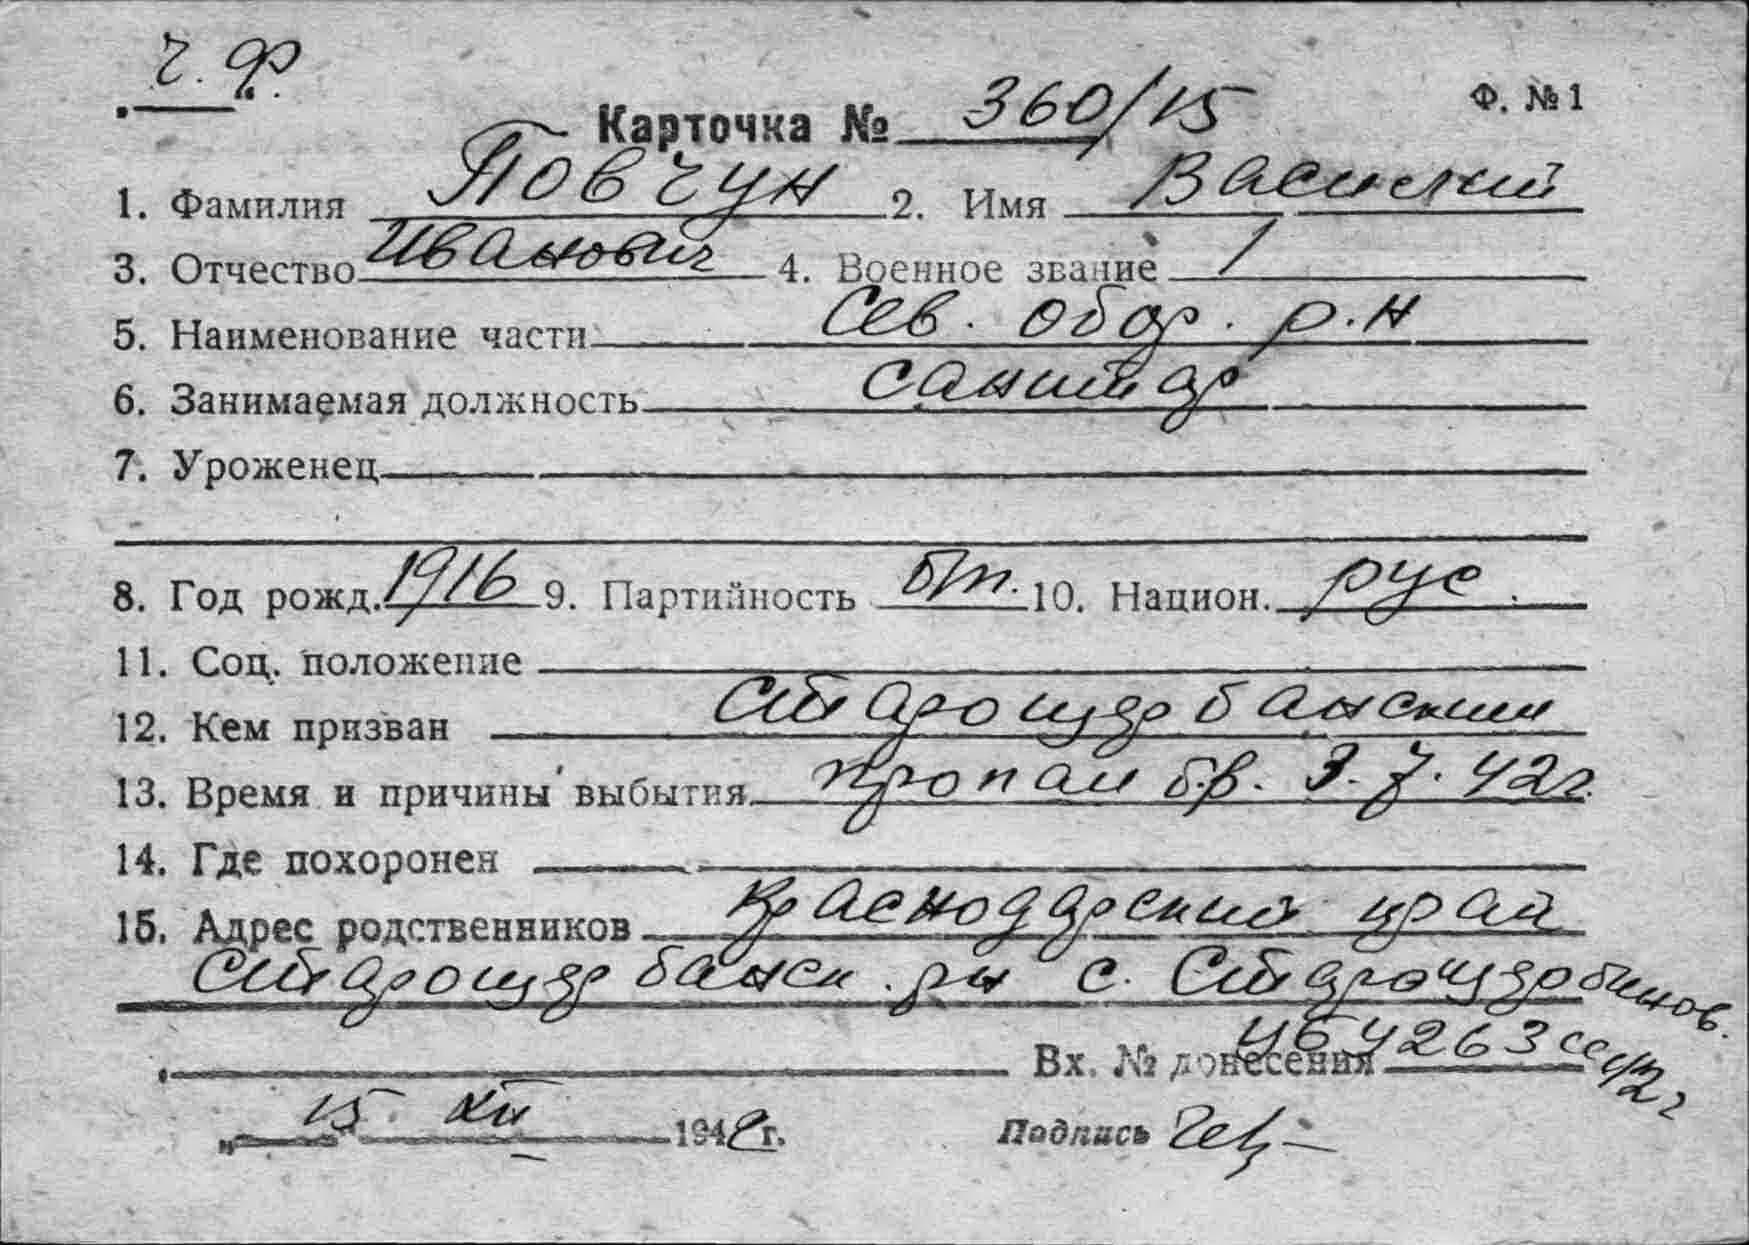 Ч.Ф.
Карточка № 360/15 Ф. №1
1. Фамилия Повчун 2. Имя Василий
3. Отчество Иванович 4. Военное звание /
5. Наименование части Сев. обор. р.н
6. Занимаемая должность санитар
7. Уроженец
8. Год рожд. 1916 9. Партийность б/п. 10. Национ. рус.
11. Соц. положение
12. Кем призван Старощербанский
13. Время и причины выбытия пропал б.в. 3.7.42г.
14. Где похоронен
15. Адрес родственников Краснодарский край
Старощербанск. рн с. Старощербинов.
Вх. № донесения 4264263сс 42г
„15“ XII 1942г. Подпись